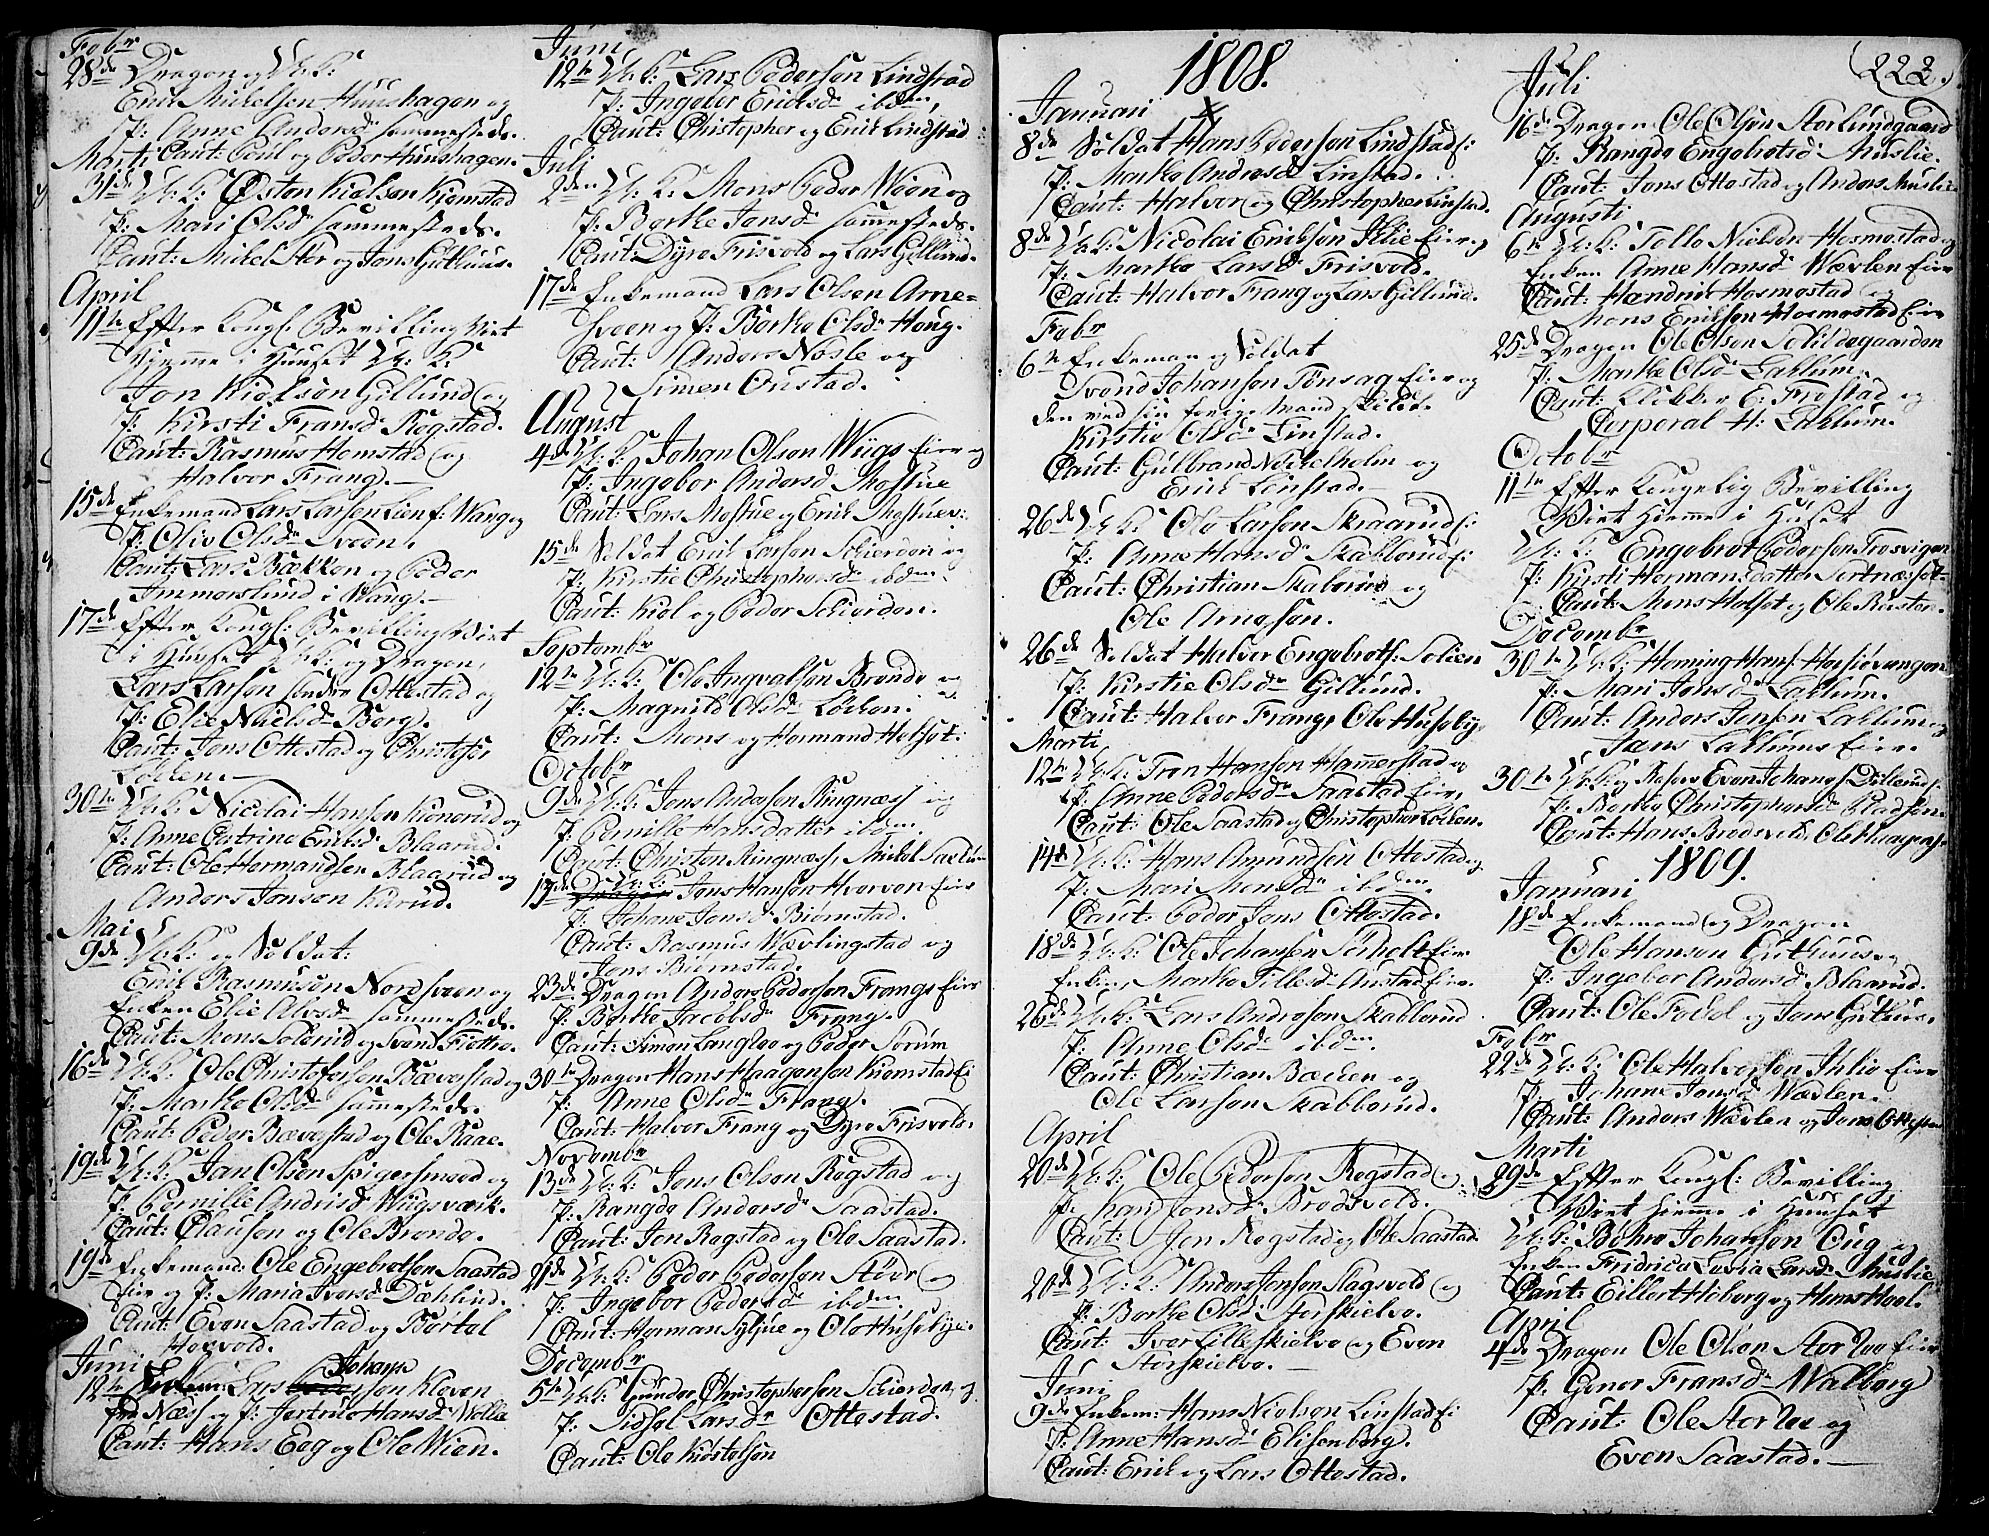 Febr
28de Dragon og U:K:
Erik Mickelsen Huushagen og
P: Anne Andersd sammesteds.
Marti Caut: Poul og Peder Huushagen.
31de U:K: Østen Kielsen Kiemstad
P: Mari Olsd sammesteds.
Caut: Mikel Ster og Jens Guthuus.
April
11te Efter Kongl: Bevilling Viet
Hjemme i Huuset U:K:
Jon Kielsen Gillund og
P: Kirsti Fransd Rogstad.
Caut: Rasmus Hemstad og
Halvor Frang.
15de Enkemand Lars Larsen Lien f: Wang og
P: Olio Olsd Sveen.
Caut: Lars Bækken og Peder
Immerslund i Wang.
17de Efter Kongl: Bevilling Viet
i Huuset U:K: og Dragon,
Lars Larsen søndre Ottestad og
P: Elie Nielsd Borg.
Caut: Jens Ottestad og Christofer
Løcken.
30te U:K: Nicolai Hansen Kionerud og
P: Anne Catrine Eriksd Blaarud.
Caut: Ole Hermandsen Blaarud og
Anders Jensen Kurud.
Mai
9de U:K: og Soldat:
Erik Rasmusen Nordsveen og
Enken Elie Alvsd sammesteds.
Caut: Mons Solerud og Svend Fiettre.
16de U:K: Ole Christofersen Bæverstad og
P: Marthe Olsd sammesteds.
Caut: Peder Bæverstad og Ole Raae.
19de U:K: Jan Olsen Spigersmed og
P: Pernille Andrisd Wiigsværk.
Caut: Clausen og Ole Brende.
19de Enkemand: Ole Engebretsen Saastad
Eier og P: Maria Iversd Dæhlind.
Caut: Even Saastad og Bertel
Hoevold.
Juni
12te Lars Johans son Kleven
Næss og P: Jertrue Hansd Wolla
Caut: Hans Eeg og Ole Wien.
Juni
12te U:K: Lars Pedersen Lindstad
P: Ingeber Ericksd ibdm,
Caut: Christopher og Erik Lindstad
Juli
2den U:K: Mons Peder Moen og
P: Borthe Jonsd sammesteds.
Caut: Dyre Frisvold og Lars Gillund.
17de Enkemand Lars Olsen Arne=
sveen og P: Borthe Olsd Houg.
Caut: Anders Nosle og
Simen Onstad.
August
4de U:K: Johan Olsen Wiigs Eier og
P: Ingebor Andersd Mostue
Caut: Lars Mostue og Erik Mostue.
15de Soldat Erik Larsen Schierden og
P: Kirstie Christophersd ibdm.
Caut: Kiel og Peder Schierden.
Septembr
12te U:K: Ole Ingvalsen Brende og
P: Magnild Olsd Løcken.
Caut: Mons og Hermand Holset.
Octobr
9de U:K: Jens Andersen Ringnæss og
P: Pernille Hansdatter ibdm.
Caut: Christen Ringnæss, Mikel Saxlum
13de U:K: Jens Hansen Hvorven Eier
P: Johane Jensd Biørnstad.
Caut: Rasmus Wævlingstad og
Jens Biørnstad.
23de Dragon Anders Pedersen Frangs Eier
P: Borthe Jacobsd Frang.
Caut: Simon Langloe og Peder Sorum
30te Dragon Hans Haagensen Kiemstad Ei
P: Anne Olsd Frang.
Caut: Halvor Frang og Dyre Frisvold.
Novembr
13de U:K: Jens Olsen Rogstad og
P: Rangdo Andersd Saastad.
Caut: Jon Rogstad og Ole Saastad.
21de U:K: Peder Pedersen Støvr og
P: Ingebor Pedersd ibdm.
Caut: Herman Syljue og Ole Husebye.
Decembr
5te U:K: Gunder Christophersen Schierden og
P: Sidsel Larsd Ottestad.
Caut: Ole Kiøstelsen
222.
1808.
Januari
8de Soldat Hans Pedersen Lindstad f:
P: Marthe Andresd Linstad.
Caut: Halvor og Christopher Linstad.
8de U:K: Nicolai Eriksen Ihlie Eier og
P: Marthe Larsd Frisvold.
Caut: Halvor Frang og Lars Gillund.
Febr
6te Enkeman og Soldat
Svend Johansen Tønsag Eier og
den ved sin forrige Mand skildt
Kirstie Olsd Linstad.
Caut: Gulbrand Nickelholm og
Erik Linstad.
26de U:K: Ole Larsen Skraarud f:
P: Anne Hansd Skabberud f:
Caut: Christian Skaberud og
Ole Arnesen.
26de Soldat Halver Engebrets: Solien
P: Kirstie Olsd Gillund.
Caut: Halvor Frang, Ole Husebye.
Marti
12te U:K: Tron Hansen Hammerstad og
P: Anne Pedersd Saastad Eier,
Caut: Ole Saastad og Christopher Løcken.
14de U:K: Hans Amundsen Ottestad og
P: Mari Monsd ibdm.
Caut: Peder Jens Ottestad.
18de U:K: Ole Johansen Sørholt Eier
Enken, Marthe Tillesd Anstad Eier.
26de U:K: Lars Andresen Skabberud
P: Anne Olsd ibdm.
Caut: Christian Bæcken og
Ole Larsen Skabberud.
April
20de U:K: Ole Pedersen Rogstad og
P: Kari Jonsd Brodsvold.
Caut: Jon Rogstad og Ole Saastad
20de U:K: Anders Jensen Slagsvold og
P: Borthe Olsd Storskielve.
Caut: Iver Lilleskielve og Even
Storskielve.
Juni
9de Enkem: Hans Nielsen Linstad Ei
P: Anne Hansd Elisenberg.
Caut: Erik og Lars Ottestad.
Juli
16de Dragon Ole Olsen Storlundgaard
P: Rangdo Engebretsd Muslie.
Caut: Jens Ottestad og Anders Muslie
Augusti
6te U:K: Tolle Nielsen Hosmestad og
Enken Anne Hansd Wævlen Eier
Caut: Hendrik Hosmestad og
Mons Eriksen Hosmestad Eier
25de Dragon Ole Olsen Schildegaarden
P: Marthe Olsd Laklum.
Caut: Klokker E: Frøstad og
Corporal H: Laklum.
Octobr
11te Efter Kongelig Bevilling
Viet Hjemme i Huset
U:K: Engebret Pedersen Trosvigen
P: Kirsti Hermansdatter Sertnæsset.
Caut: Mons Holset og Ole Raster.
Decembr
30te U:K: Heming Hans: Horsiøvangen
P: Mari Jensd Laklum.
Caut: Anders Jensen Laklum og
Jens Laklums Eier.
30te U:K: og Reserv Even Johans: Dølerud
P: Borthe Christophersd Pladsen.
Caut: Hans Brodsvold, Ole Haagens.
1809.
Januari
18de Enkemand og Dragon
Ole Hansen Guthuus og
P: Ingebor Andersd Blaarud.
Caut: Ole Fodel og Jens Guthus.
Febr
22de U:K: Ole Halvorsen Ihlie Eier
P: Johane Jensd Wævlen.
Caut: Anders Wævlen og Jens Ottestad
Marti
29de Efter Kongl: Bevilling
Viet hjemme i Huuset
U:K: Behro Johansen Oug og
Enken Fridrica Lovia Larsd Muslie.
Caut: Eillert Hiberg og Hans Hoel.
April
4de Dragon Ole Olsen Storloe Eier
P: Goner Fransd Walberg
Caut: Ole Storloe og
Even Saastad.